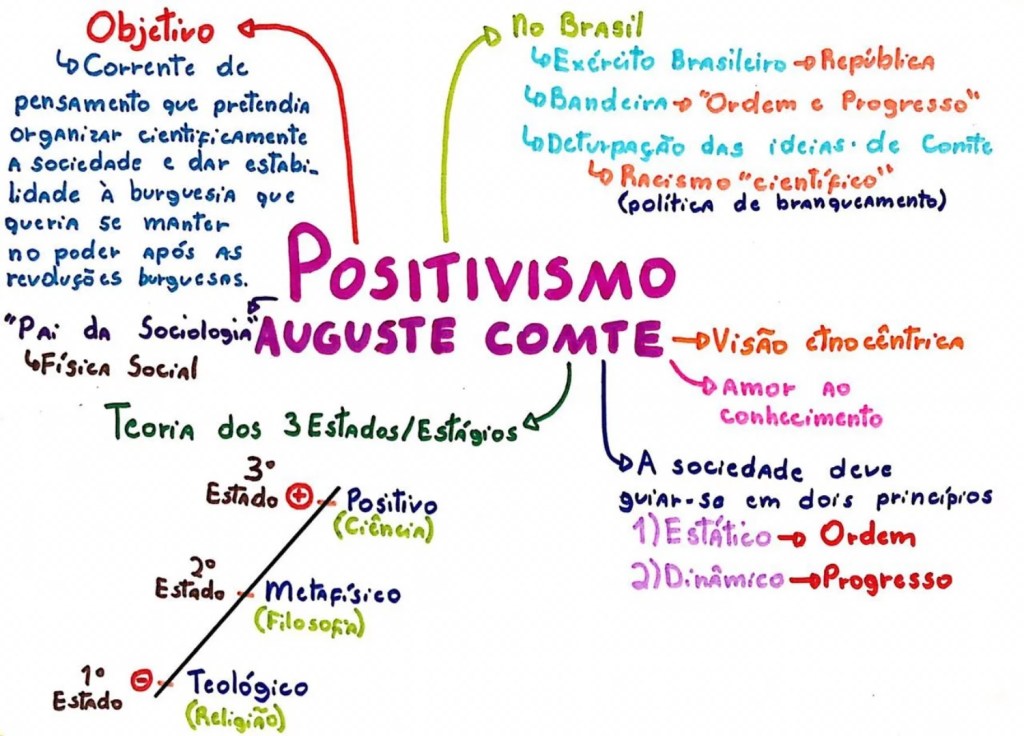 Objetivo
↳Corrente de
pensamento que pretendia
organizar cientificamente
a sociedade e dar estabi-
lidade à burguesia que
queria se manter
no poder após as
revoluções burguesas.
No Brasil
↳Exército Brasileiro→República
↳Bandeira→"Ordem e Progresso"
↳Deturpação das ideias de Comte
↳Racismo "científico"
(política de branqueamento)
Positivismo
Auguste Comte
"Pai da Sociologia"
↳Física Social
→Visão etnocêntrica
Amor ao
conhecimento
A sociedade deve
guiar-se em dois princípios
1)Estático→Ordem
2)Dinâmico→Progresso
Teoria dos 3 Estados/Estágios
3º
Estado + Positivo
(Ciência)
2º
Estado Metafísico
(Filosofia)
1º
Estado - Teológico
(Religião)